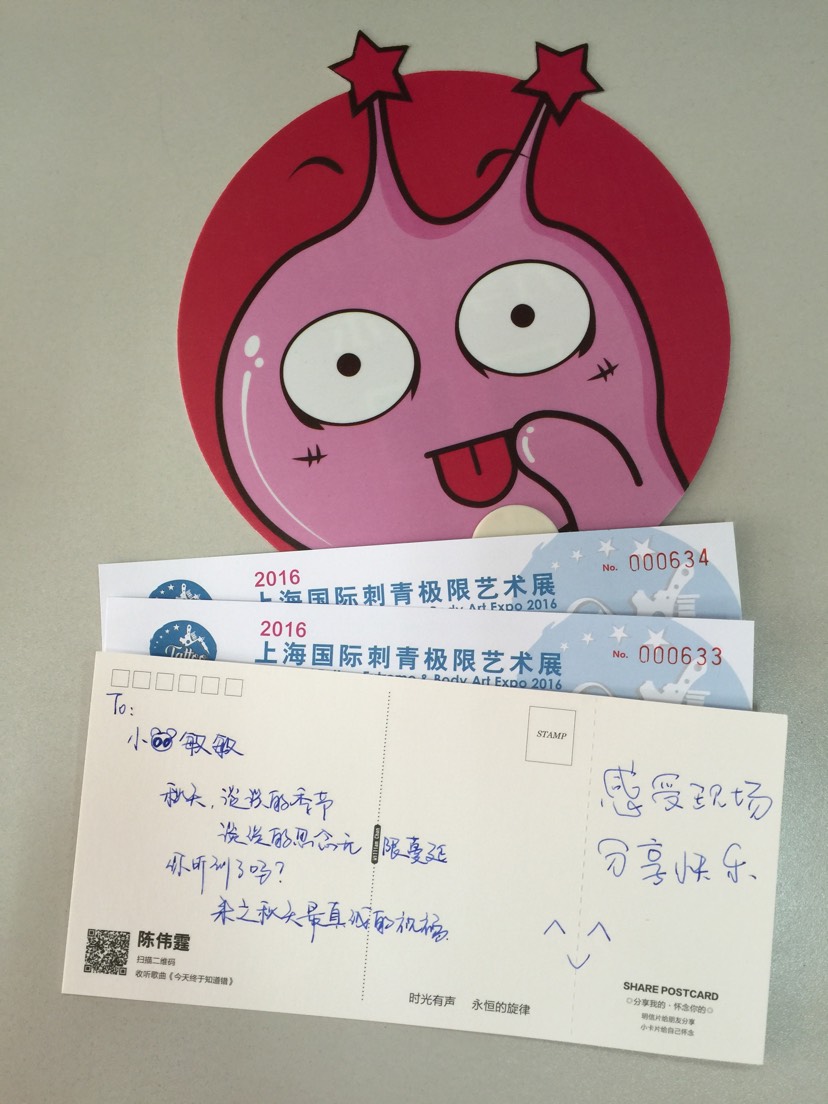 No. 000634
2016
上海国际刺青极限艺术展
Body Art Expo 2016
No. 000633
2016
上海国际刺青极限艺术展
Tattoo Extreme & Body Art Expo 2016
To:
小 敏敏
秋天,淡淡的季节
淡淡的思念无限蔓延
你听到了吗?
来之秋天最真诚的祝福.
William Chan
陈伟霆
扫描二维码
收听歌曲《今天终于知道错》
时光有声 永恒的旋律
STAMP
感受现场
分享快乐
SHARE POSTCARD
分享我的·怀念你的
明信片给朋友分享
小卡片给自己怀念